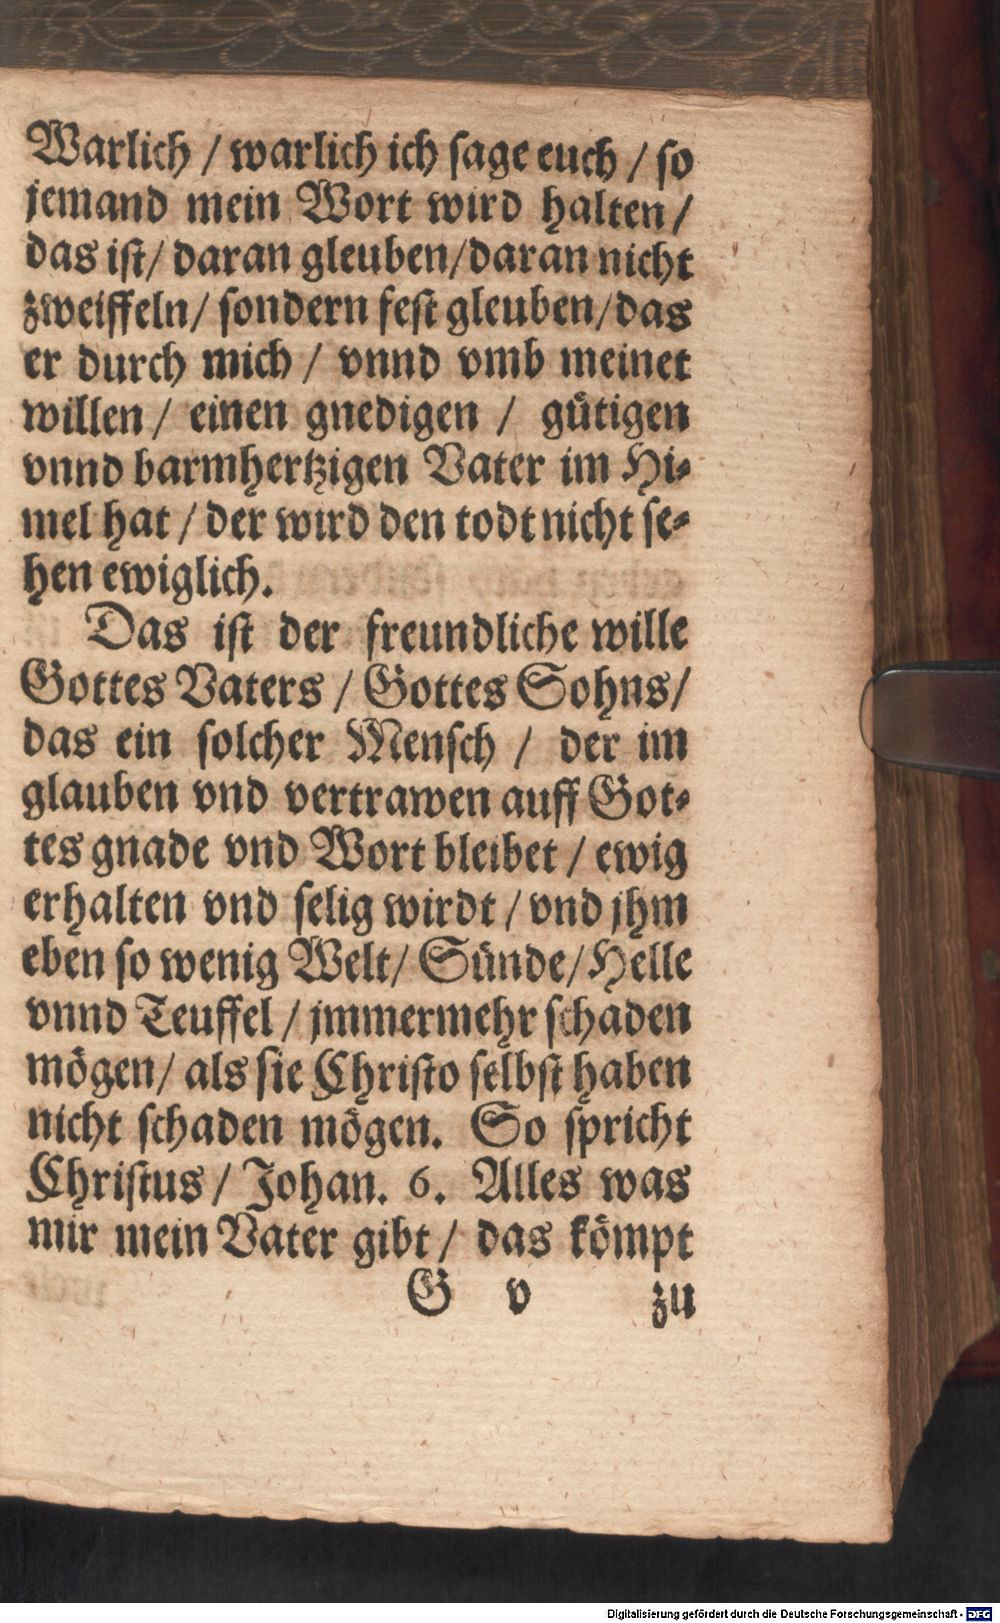 Warlich / warlich ich sage euch / so
jemand mein Wort wird halten /
das ist / daran gleuben / daran nicht
zweiffeln / sondern fest gleuben / das
er durch mich / vnnd vmb meinet
willen / einen gnedigen / gütigen
vnnd barmhertzigen Vater im Hi-
mel hat / der wird den todt nicht se-
hen ewiglich.
Das ist der freundliche wille
Gottes Vaters / Gottes Sohns /
das ein solcher Mensch / der im
glauben vnd vertrawen auff Got-
tes gnade vnd Wort bleibet / ewig
erhalten vnd selig wirdt / vnd jhm
eben so wenig Welt / Sünde / Helle
vnnd Teuffel / jmmermehr schaden
mögen / als sie Christo selbst haben
nicht schaden mögen. So spricht
Christus / Johan. 6. Alles was
mir mein Vater gibt / das kömpt
G v zu
Digitalisierung gefördert durch die Deutsche Forschungsgemeinschaft - DFG